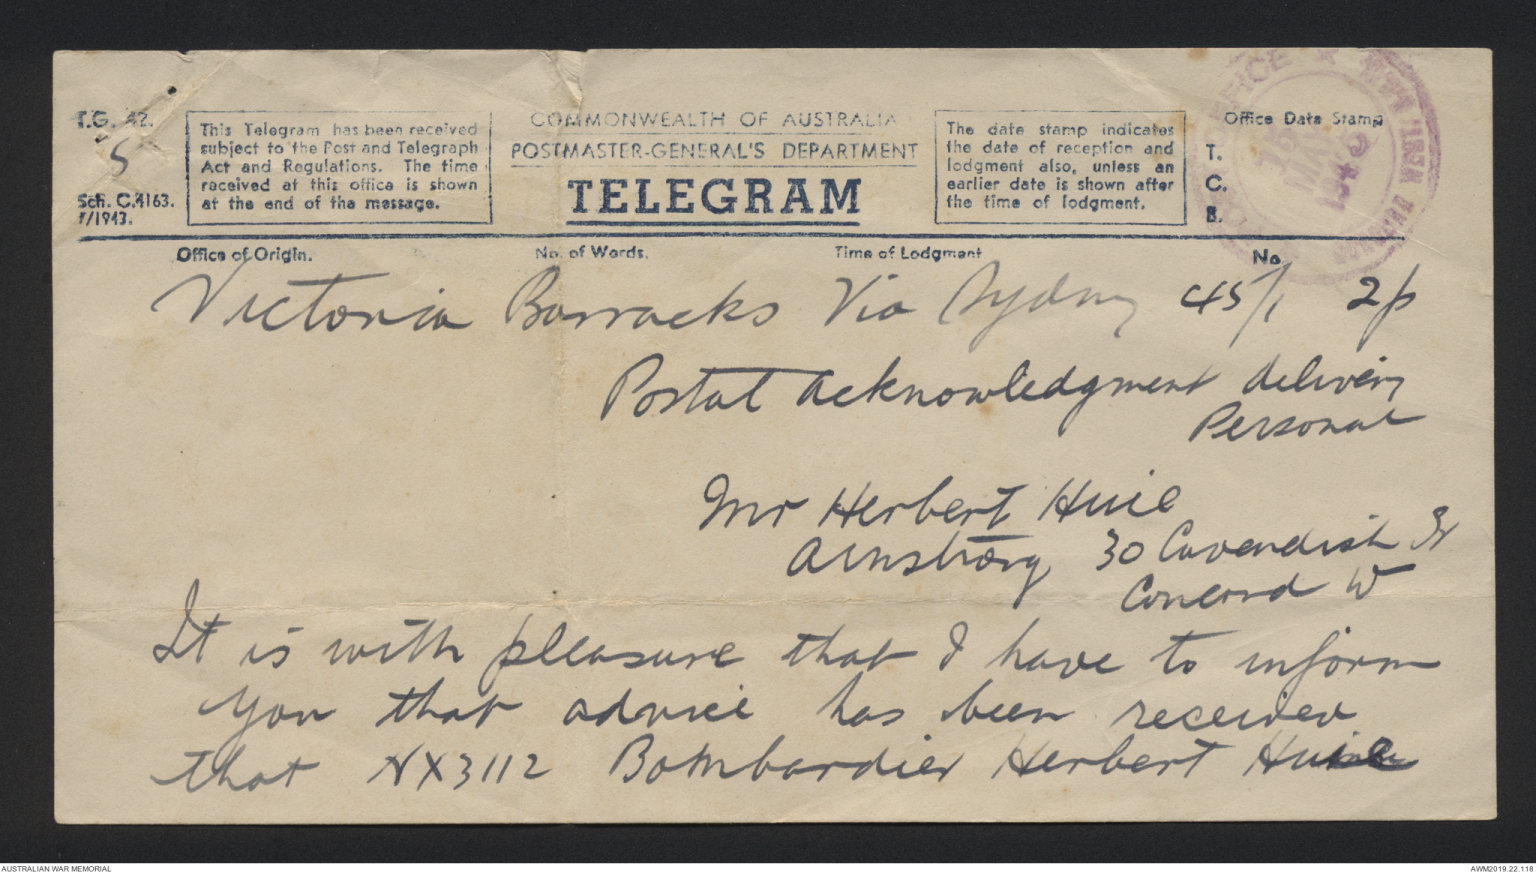 T.G. 42.
5
Sch. C.4163.
7/1943.
This Telegram has been received
subject to the Post and Telegraph
Act and Regulations. The time
received at this office is shown
at the end of the message.
COMMONWEALTH OF AUSTRALIA
POSTMASTER-GENERAL'S DEPARTMENT
TELEGRAM
The date stamp indicates
the date of reception and
lodgment also, unless an
earlier date is shown after
the time of lodgment.
Office Date Stamp
T.
C.
B.
Office of Origin. No. of Words. Time of Lodgment No
Victoria Barracks Via Sydney 45/1 2p
Postal acknowledgment delivery
Personal
Mr Herbert Huie
Armstrong 30 Cavendish St
Concord W
It is with pleasure that I have to inform
you that advice has been received
that NX3112 Bombardier Herbert Huie
AUSTRALIAN WAR MEMORIAL
AWM2019.22.118